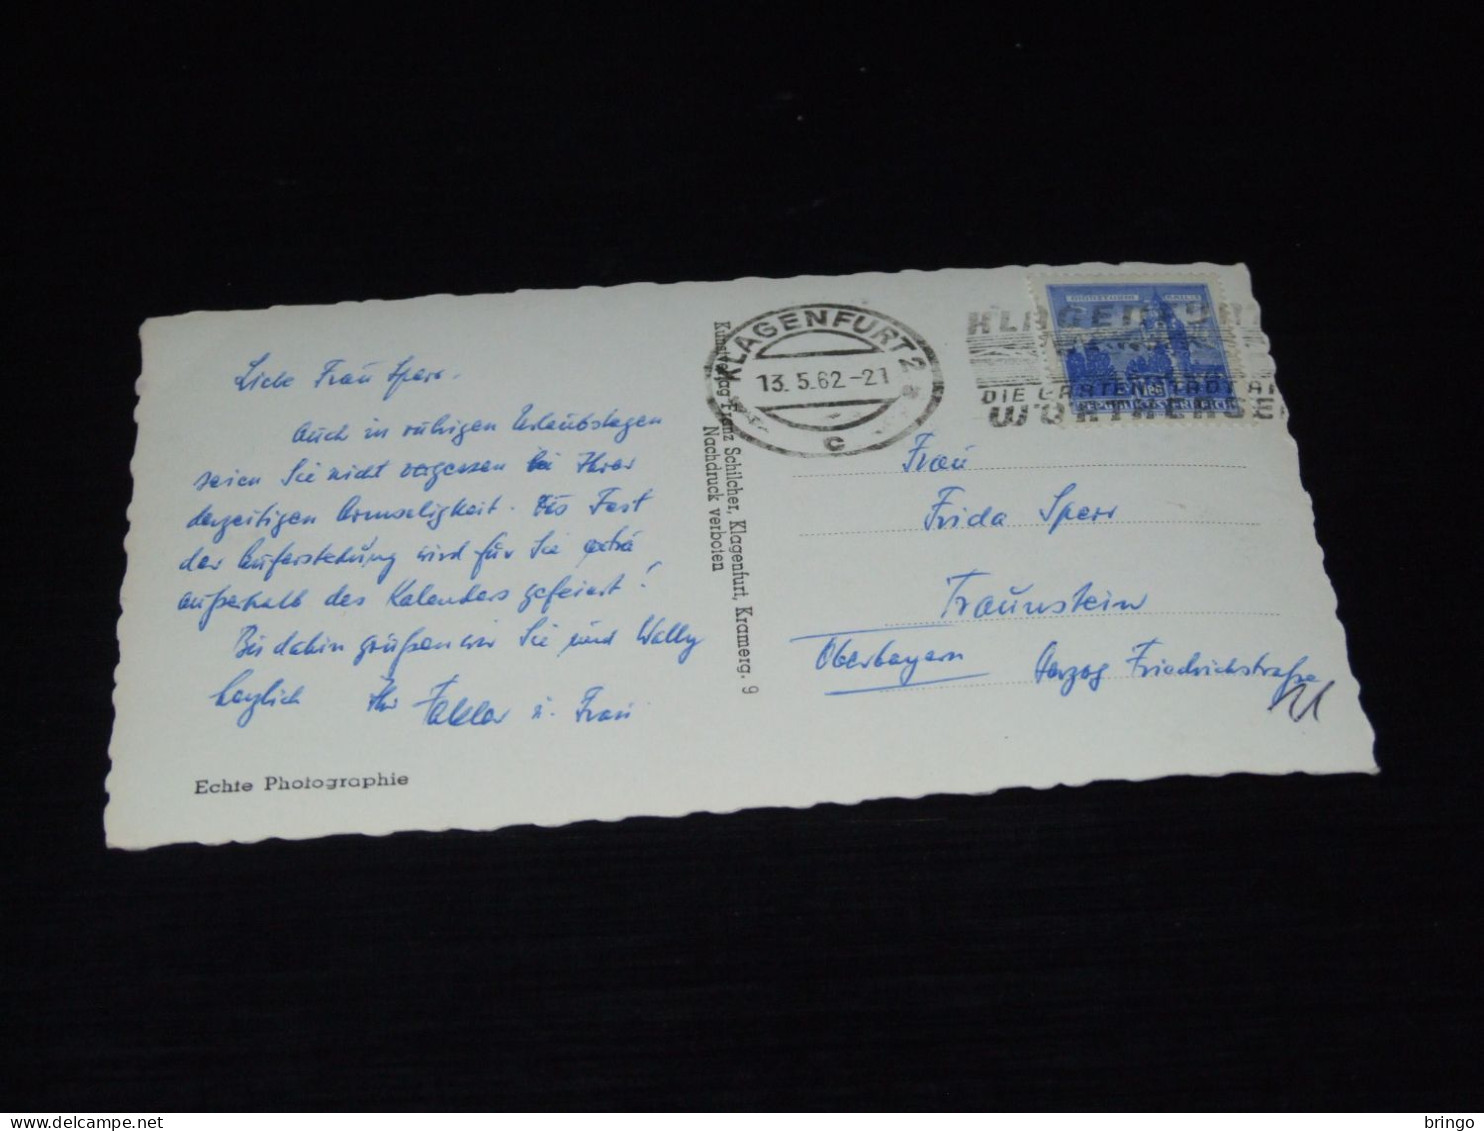 Liebe Frau Sperr.
Auch in ruhigen Urlaubstagen
seien Sie nicht vergessen bei Ihrer
derzeitigen Armseligkeit. Das Fest
der Auferstehung wird für Sie extra
außerhalb des Kalenders gefeiert!
Bis dahin grüßen wir Sie und Wally
herzlich Ihr u. Frau
Echte Photographie
Kunstverlag Franz Schilcher, Klagenfurt, Kramerg. 9
Nachdruck verboten
KLAGENFURT 2
13.5.62-21
a
c
KLAGENFURT
DIE GARTENSTADT AM
WÖRTHERSEE
REPUBLIK ÖSTERREICH
Frau
Frida Sperr
Traunstein
Oberbayern Herzog Friedrichstraße
bringo
delcampe.net